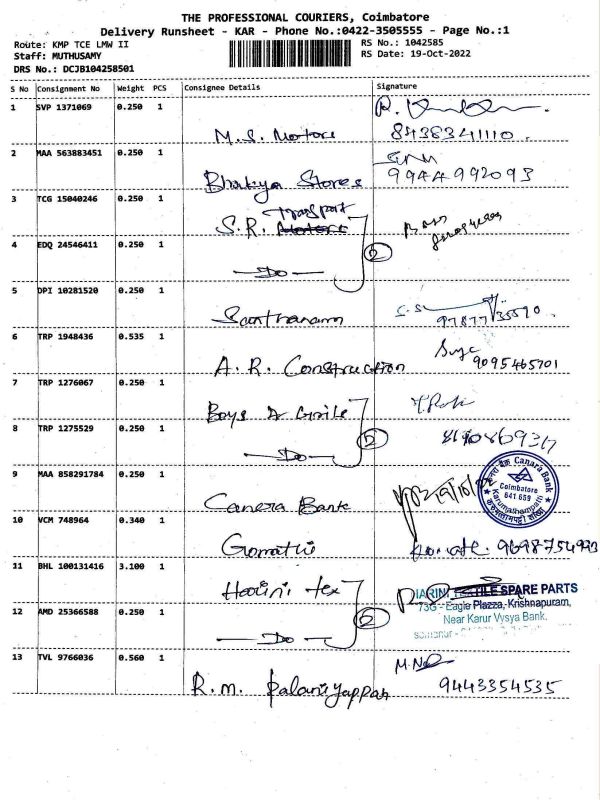 THE PROFESSIONAL COURIERS, Coimbatore
Delivery Runsheet - KAR - Phone No.:0422-3505555 - Page No.:1
Route: KMP TCE LMW II
RS No.: 1042585
Staff: MUTHUSAMY
RS Date: 19-Oct-2022
DRS No.: DCJB104258501
S No Consignment No Weight PCS Consignee Details Signature
1 SVP 1371069 0.250 1
M.S. Motors 8438341110.
2 MAA 563883451 0.250 1
Bhakya Stores 9944992093
3 TCG 15040246 0.250 1
Transport
S.R.
4 EDQ 24546411 0.250 1
Do 2
5 DPI 10281520 0.250 1
Santhanam
6 TRP 1948436 0.535 1
A.R. Construction 9095465701
7 TRP 1276067 0.250 1
Boys & Girls
8 TRP 1275529 0.250 1
Do 2
9 MAA 858291784 0.250 1
Canera Bank
Canara Bank
Coimbatore
641 659
Karumathampatti
10 VCM 748964 0.340 1
Gomathi
11 BHL 100131416 3.100 1
Harini tex
SPARE PARTS
73G - Eagle Plazza, Krishnapuram,
Near Karur Vysya Bank.
12 AMD 25366588 0.250 1
Do 2
13 TVL 9766036 0.560 1
R.m. Palaniyappan 9443354535